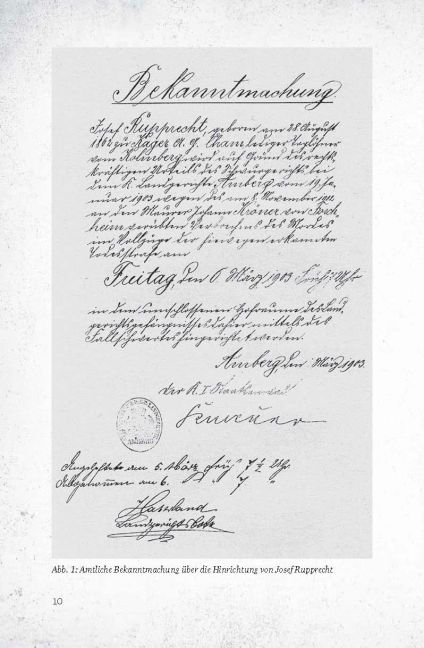 Bekanntmachung
Josef Rupprecht, geboren am 28. August
1862 zu Kager A. G. Cham lediger Taglöhner
von Kolmberg wird auf Grund des rechts-
kräftigen Urteils des Schwurgerichts bei
dem K. Landgerichte Amberg vom 19. Ja-
nuar 1903 wegen des am 8. November 1902
an dem Maurer Johann Kröner von
heim verübten Verbrechens des Mordes
im Vollzuge der hiewegen erkannten
Todesstrafe am
Freitag, den 6. März 1903 Früh 7 Uhr
in dem umschlossenen Hofraume des Land-
gerichtsgefängnisses dahier mittels des
Fallschwertes hingerichtet werden.
Amberg, den März 1903.
Der K. I. Staatsanwalt
Angeheftet am 5. März früh 7 ½ Uhr
Abgenommen am 6. " " 7 "
Landgerichtsbote
Abb. 1: Amtliche Bekanntmachung über die Hinrichtung von Josef Rupprecht
10